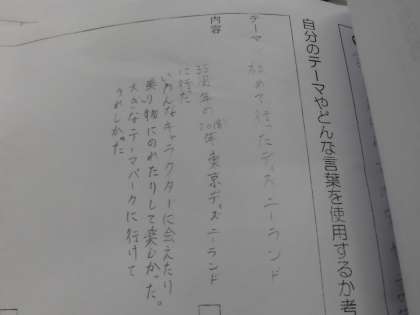 自分のテーマやどんな言葉を使用するか考
テーマ
初めて行ったディズニーランド
内容
35周年の 東京ディズニーランド
に行だ
いろんなキャラクターに会えたり
乗り物にのれたりして楽しかった。
大きなテーマパークに行けて
うれしかった